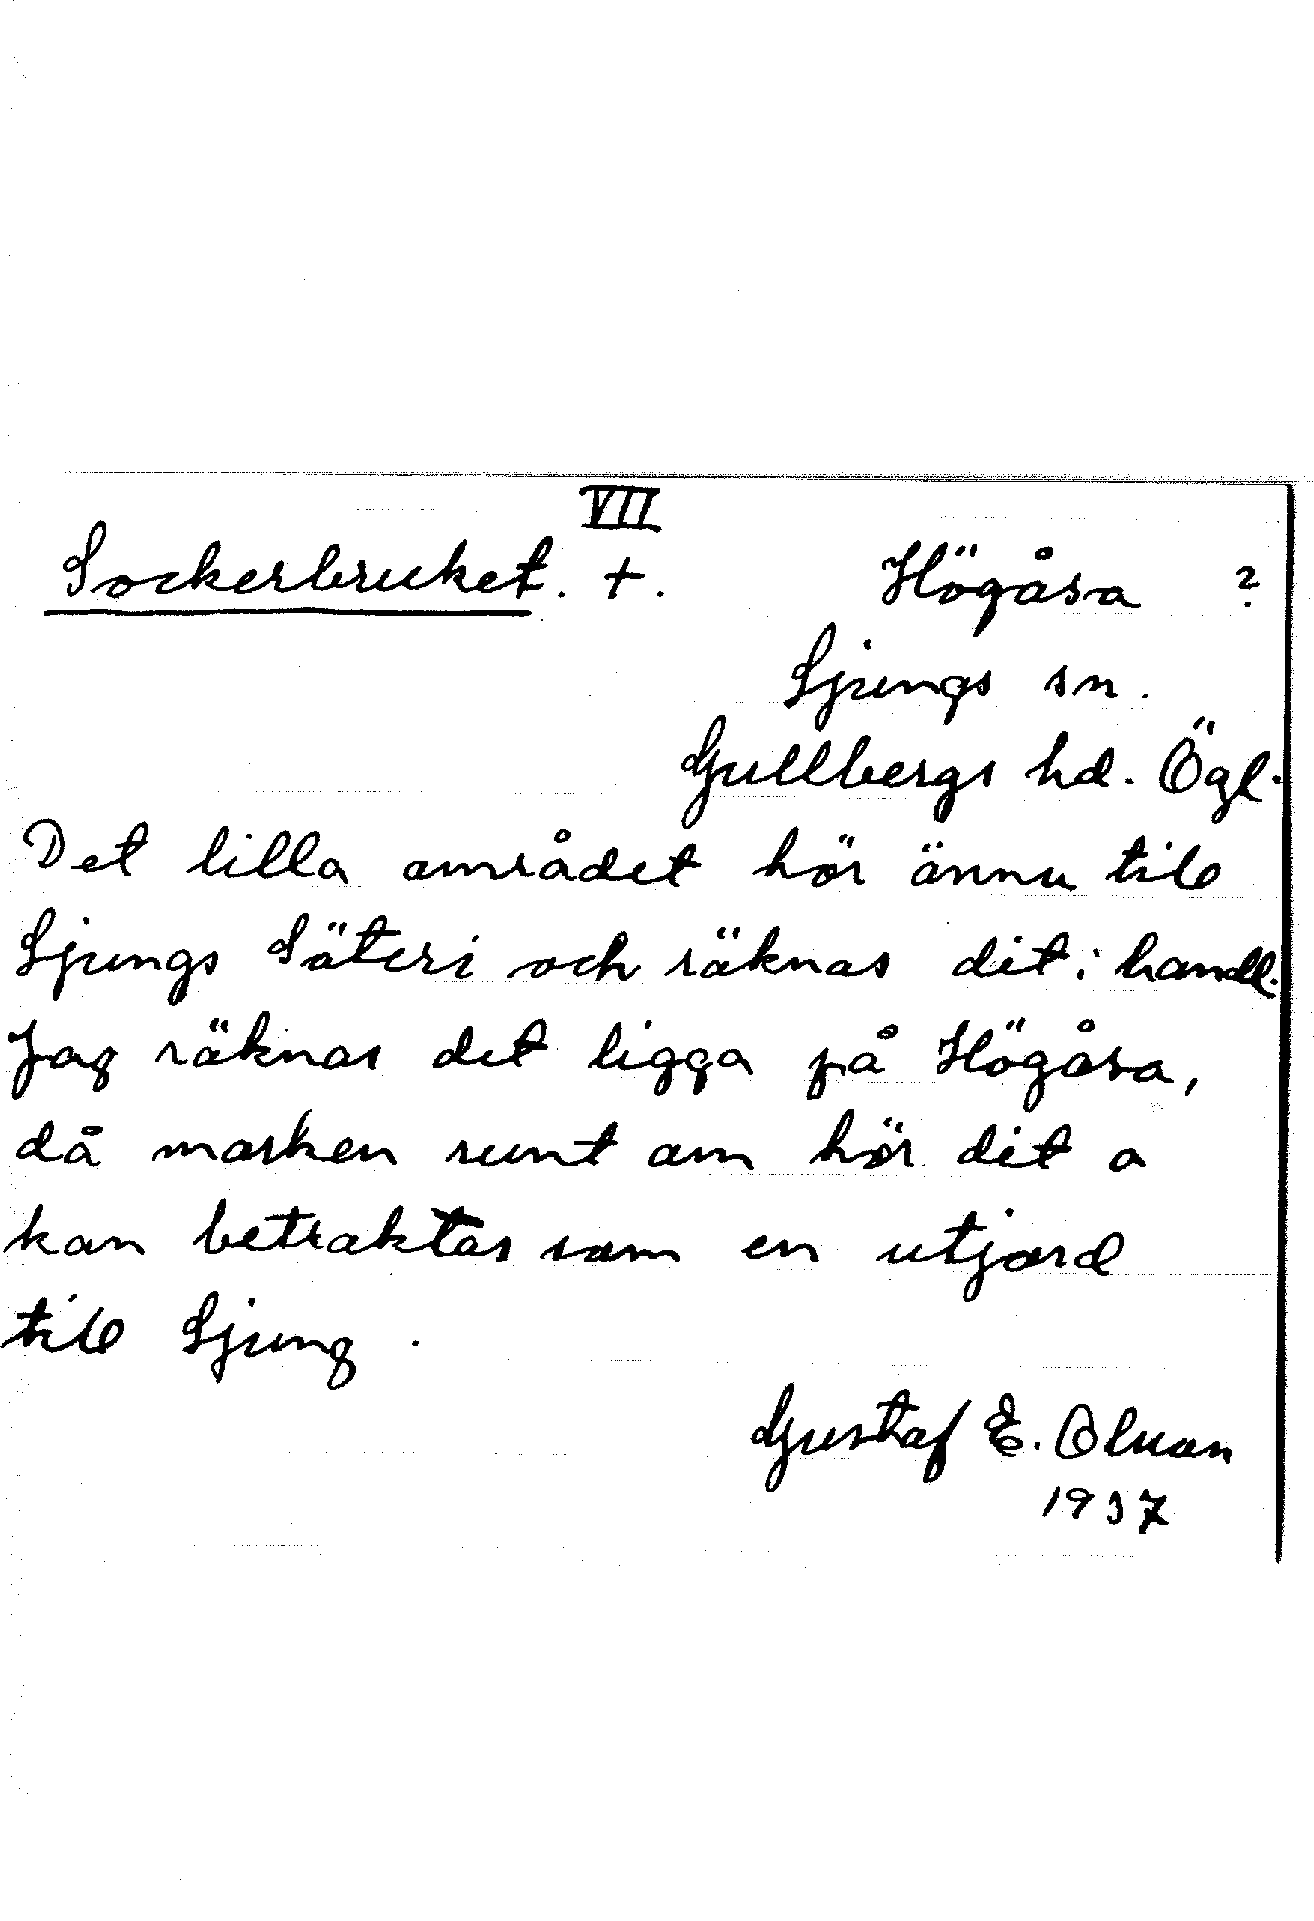 VII
Sockerbruket. +. Högåsa ?
Ljungs sn.
Gullbergs hd. Ögl.
Det lilla området hör ännu till
Ljungs Säteri och räknas dit i handl.
Jag räknar det ligga på Högåsa,
då marken runt om hör dit o
kan betraktas som en utjord
till Ljung.
Gustaf E. Olsson
1937